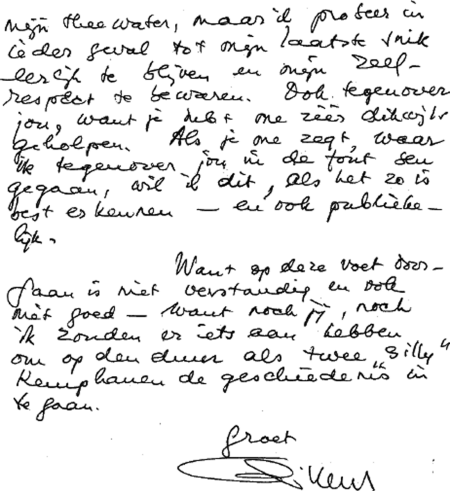 mijn theewater, maar 'k probeer in
ieder geval tot mijn laatste snik
eerlijk te blijven en mijn zelf-
respect te bewaren. Ook tegenover
jou, want je hebt me zéér dikwijls
geholpen. Als je me zegt, waar
ik tegenover jou in de fout ben
gegaan, wil ik dit, als het zo is
best erkennen — en ook publieke-
lijk.
Want op deze voet door-
gaan is niet verstandig en ook
niet goed — want noch jij, noch
ik zouden er iets aan hebben
om op den duur als twee "silly"
kemphanen de geschiedenis in
te gaan.
Groet